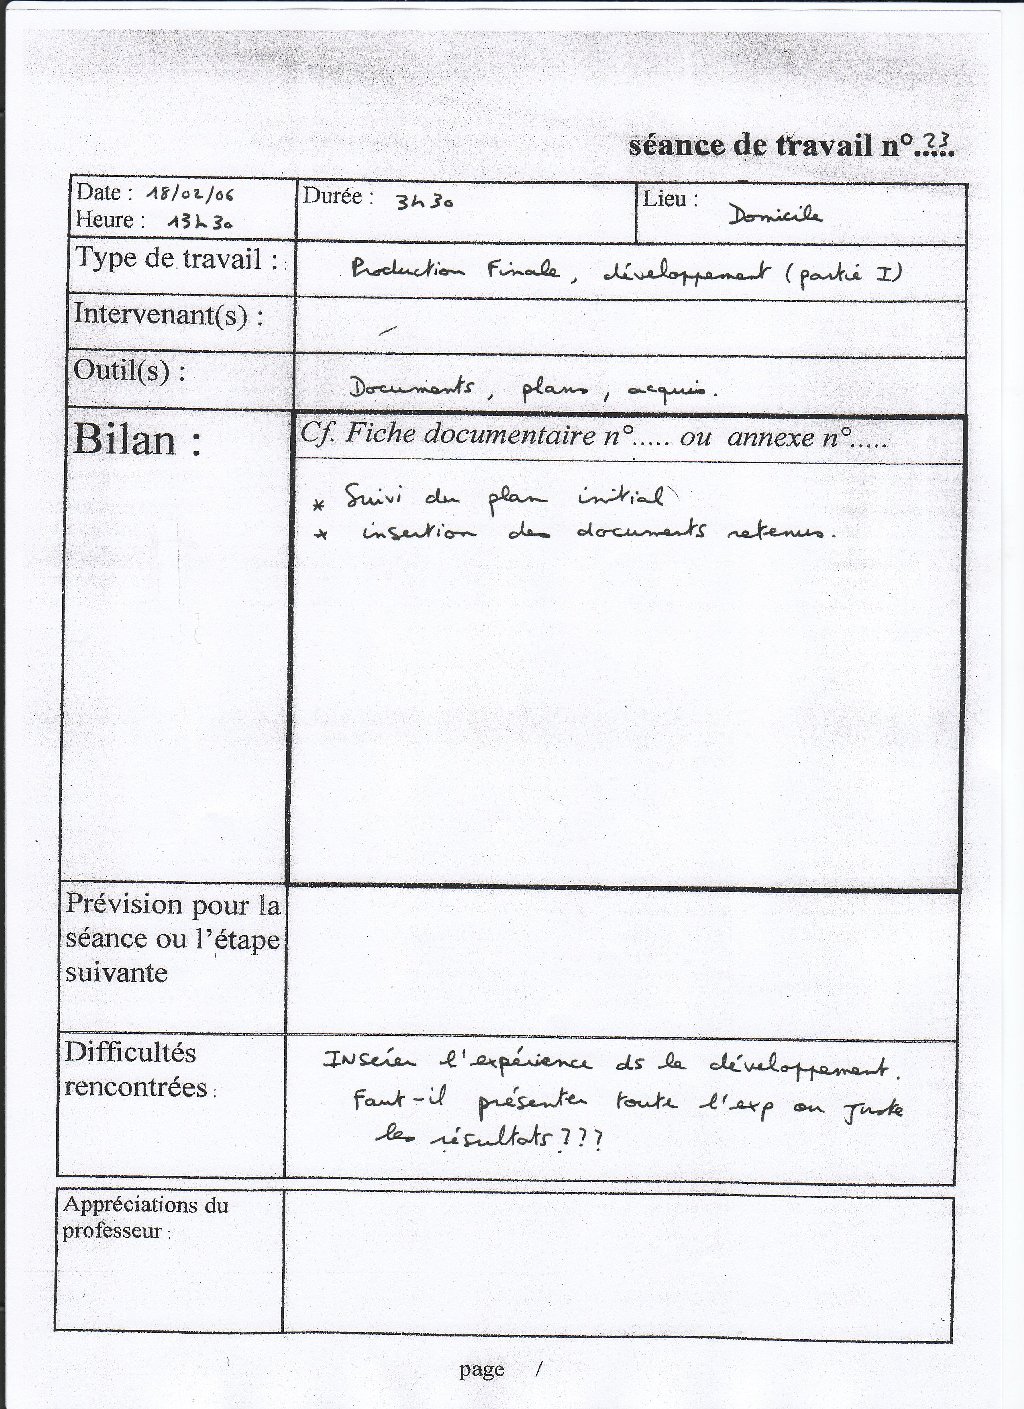 séance de travail n°.23.
Date : 18/02/06
Heure : 13h30
Durée : 3h30
Lieu : Domicile
Type de travail : Production Finale, développement (partie I)
Intervenant(s) : –
Outil(s) : Documents, plans, acquis.
Bilan :
Cf. Fiche documentaire n°..... ou annexe n°.....
* Suivi du plan initial
* insertion des documents retenus.
Prévision pour la
séance ou l'étape
suivante
Difficultés
rencontrées :
INsérer l'expérience ds le développement.
Faut-il présenter toute l'exp ou juste
les résultats ???
Appréciations du
professeur :
page /